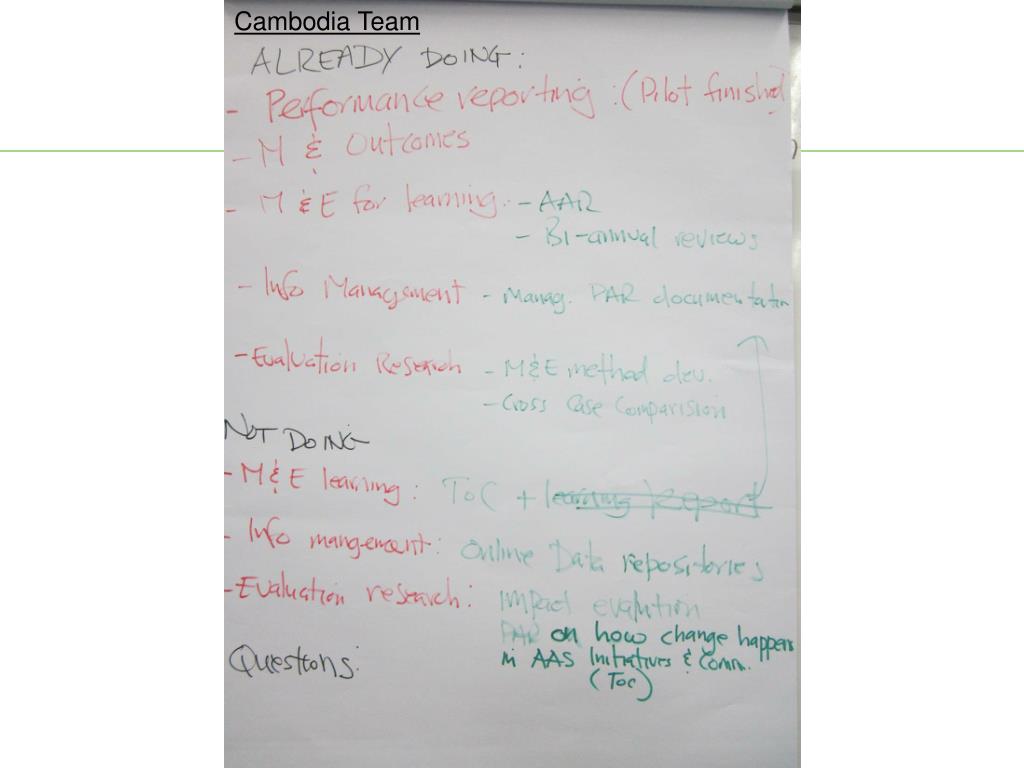 Cambodia Team
ALREADY DOING:
- Performance reporting : (Pilot finished
- M & Outcomes
- M & E for learning. - AAR
- Bi-annual reviews
- Info Management - Manag. PAR documentation
- Evaluation Research - M&E method dev.
- Cross Case Comparision
NOT DOING
- M & E learning : ToC + learning Report
- Info mangement : Online Data repositories
- Evaluation research : Impact evalution
PAR on how change happens
in AAS Initiatives & Comm.
(ToC)
Questions: